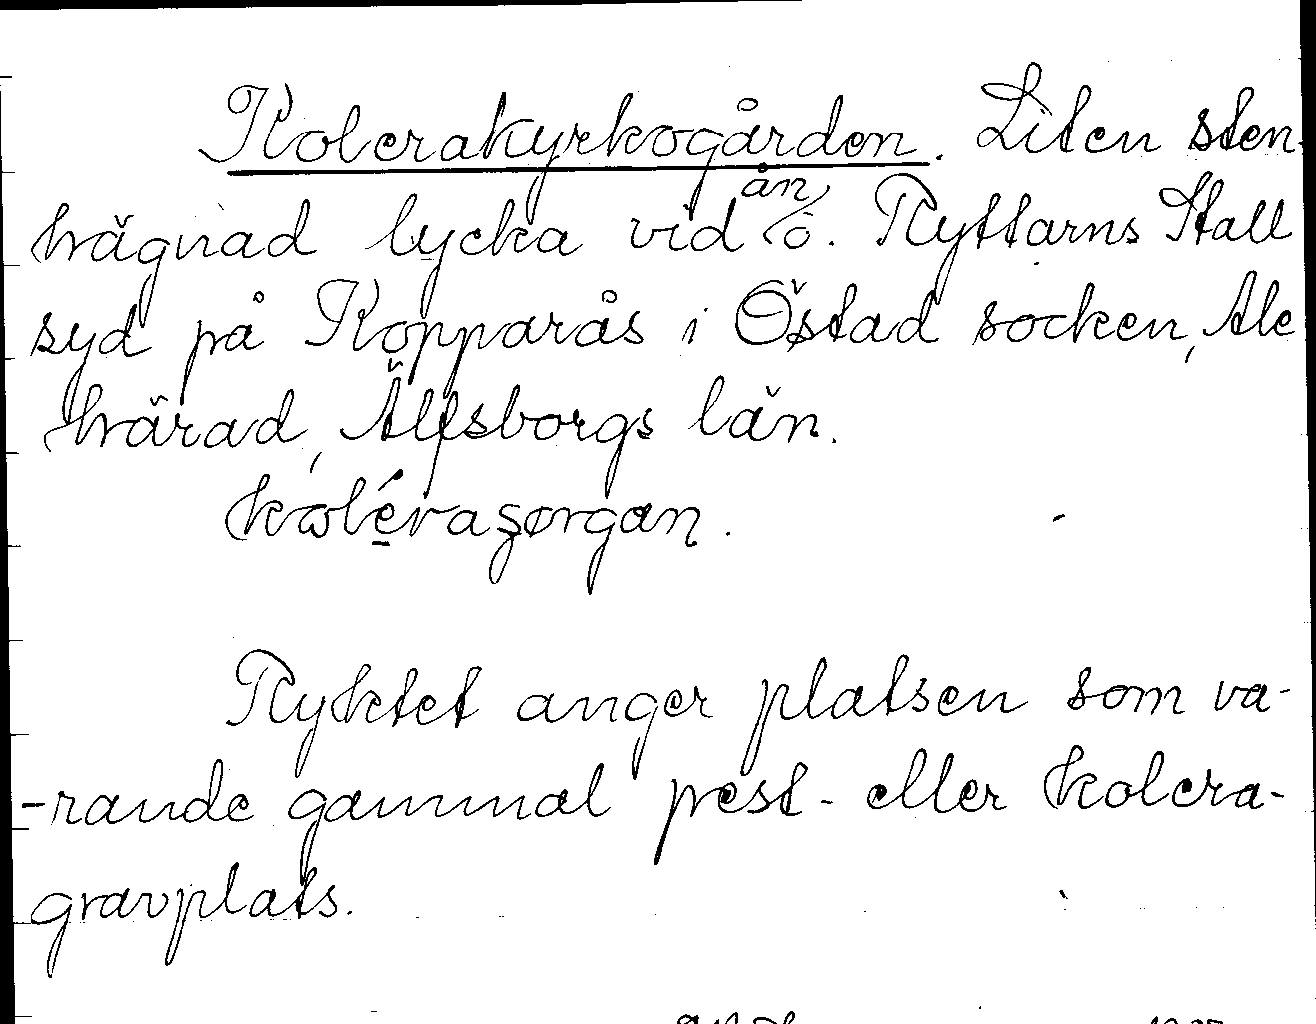 Kolerakyrkogården. Liten sten-
hägnad lycka vid ån ö. Ryttarns Stall
syd på Kopparås i Östad socken, Ale
härad, Älfsborgs län.
Ryktet anger platsen som va-
-rande gammal pest- eller kolera-
gravplats.